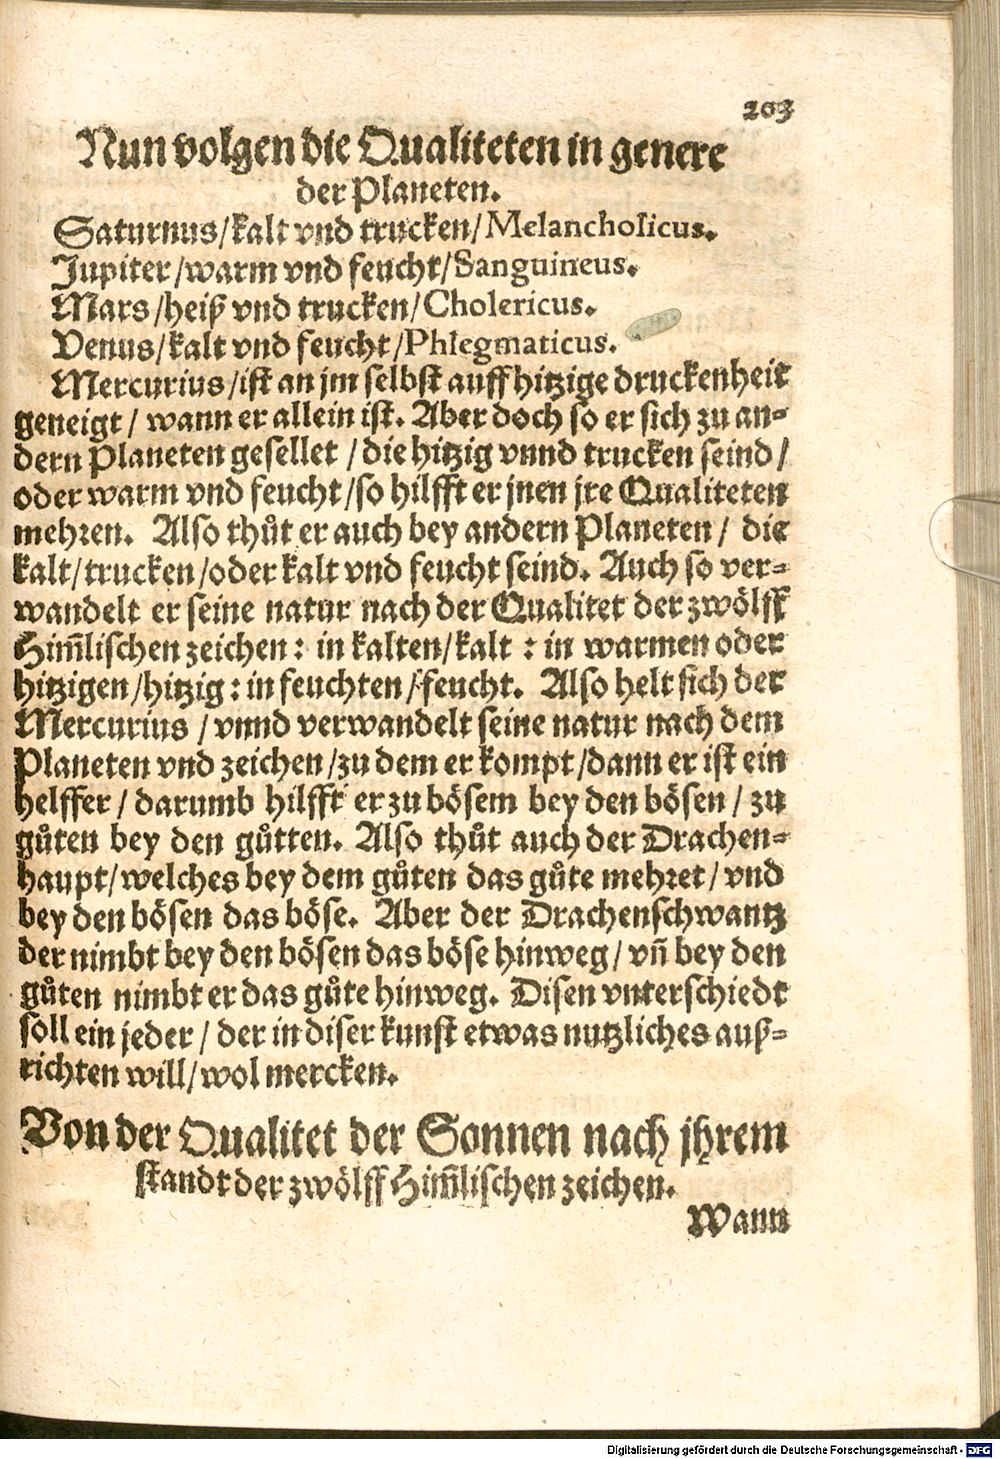 203
Nun volgen die Qualiteten in genere
der Planeten.
Saturnus/kalt vnd trucken/Melancholicus.
Jupiter/warm vnd feucht/Sanguineus.
Mars/heiß vnd trucken/Cholericus.
Venus/kalt vnd feucht/Phlegmaticus.
Mercurius/ist an jm selbst auff hitzige druckenheit
geneigt/ wann er allein ist. Aber doch so er sich zu an-
dern Planeten gesellet /die hitzig vnnd trucken seind/
oder warm vnd feucht/so hilfft er jnen jre Qualiteten
mehren. Also thůt er auch bey andern Planeten/ die
kalt/trucken/oder kalt vnd feucht seind. Auch so ver-
wandelt er seine natur nach der Qualitet der zwölff
Him̃lischen zeichen: in kalten/kalt : in warmen oder
hitzigen/hitzig: in feuchten/feucht. Also helt sich der
Mercurius /vnnd verwandelt seine natur nach dem
Planeten vnd zeichen/zu dem er kompt/dann er ist ein
helffer/ darumb hilfft er zu bösem bey den bösen/ zu
gůten bey den gůtten. Also thůt auch der Drachen-
haupt/welches bey dem gůten das gůte mehret/ vnd
bey den bösen das böse. Aber der Drachenschwantz
der nimbt bey den bösen das böse hinweg/ vñ bey den
gůten nimbt er das gůte hinweg. Disen vnterschiedt
soll ein jeder/ der in diser kunst etwas nutzliches auß-
richten will/wol mercken.
Von der Qualitet der Sonnen nach jhrem
standt der zwölff Him̃lischen zeichen.
Wann
Digitalisierung gefördert durch die Deutsche Forschungsgemeinschaft - DFG